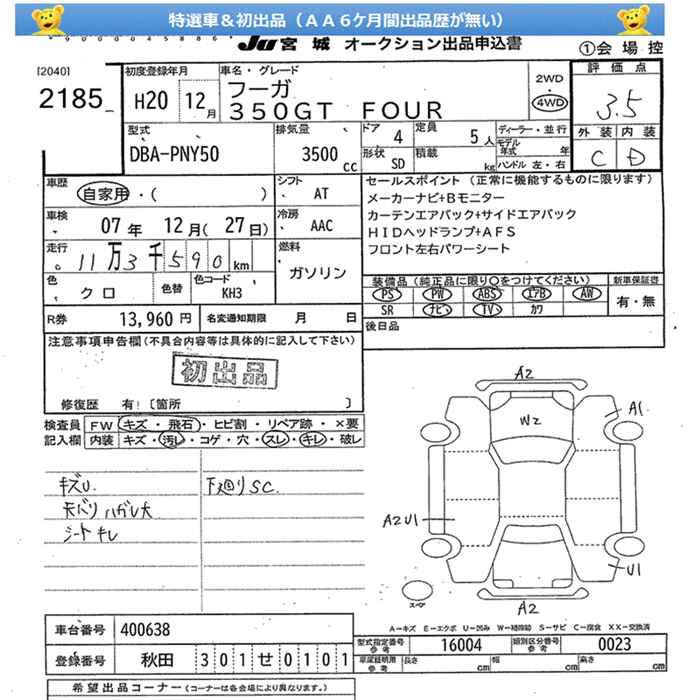 特選車＆初出品（ＡＡ６ケ月間出品歴が無い）
JU宮城 オークション出品申込書
①会場控
[2040]
2185
初度登録年月
H20 12月
車名・グレード
フーガ
350GT FOUR
2WD
・
4WD
評価点
3.5
外装 内装
C D
型式
DBA-PNY50
排気量
3500 cc
ドア 4
形状 SD
定員 5人
積載 kg
ディーラー・並行
モデル年式 年
ハンドル 左・右
車歴
自家用・( )
シフト AT
車検
07年 12月(27日)
冷房 AAC
走行
11万3千590km
燃料
ガソリン
色
クロ
色替
色コード
KH3
R券 13,960円
名変通知期限 月 日
セールスポイント（正常に機能するものに限ります）
メーカーナビ+Bモニター
カーテンエアバック+サイドエアバック
HIDヘッドランプ+AFS
フロント左右パワーシート
装備品（純正品に限り〇をつけてください）
新車保証書
PS PW ABS エアB AW
SR ナビ TV カワ
有・無
後日品
注意事項申告欄(不具合内容等は具体的に記入して下さい)
初出品
修復歴 有!〔箇所 〕
検査員記入欄
FW キズ・飛石・ヒビ割・リペア跡・×要
内装 キズ・汚レ・コゲ・穴・スレ・キレ・破レ
キズU.
天バリハガレ大
シートキレ
下廻りSC.
A2
W2
A1
A2U1
U1
スペア
A2
A－キズ E－エクボ U－凹み W－補修跡 S－サビ C－腐食 XX－交換済
車台番号 400638
登録番号 秋田 301せ0101
型式指定番号 参考 16004
類別区分番号 参考 0023
車庫証明用 参考 長さ cm 幅 cm 高さ cm
希望出品コーナー(コーナーは各会場により異なります。)